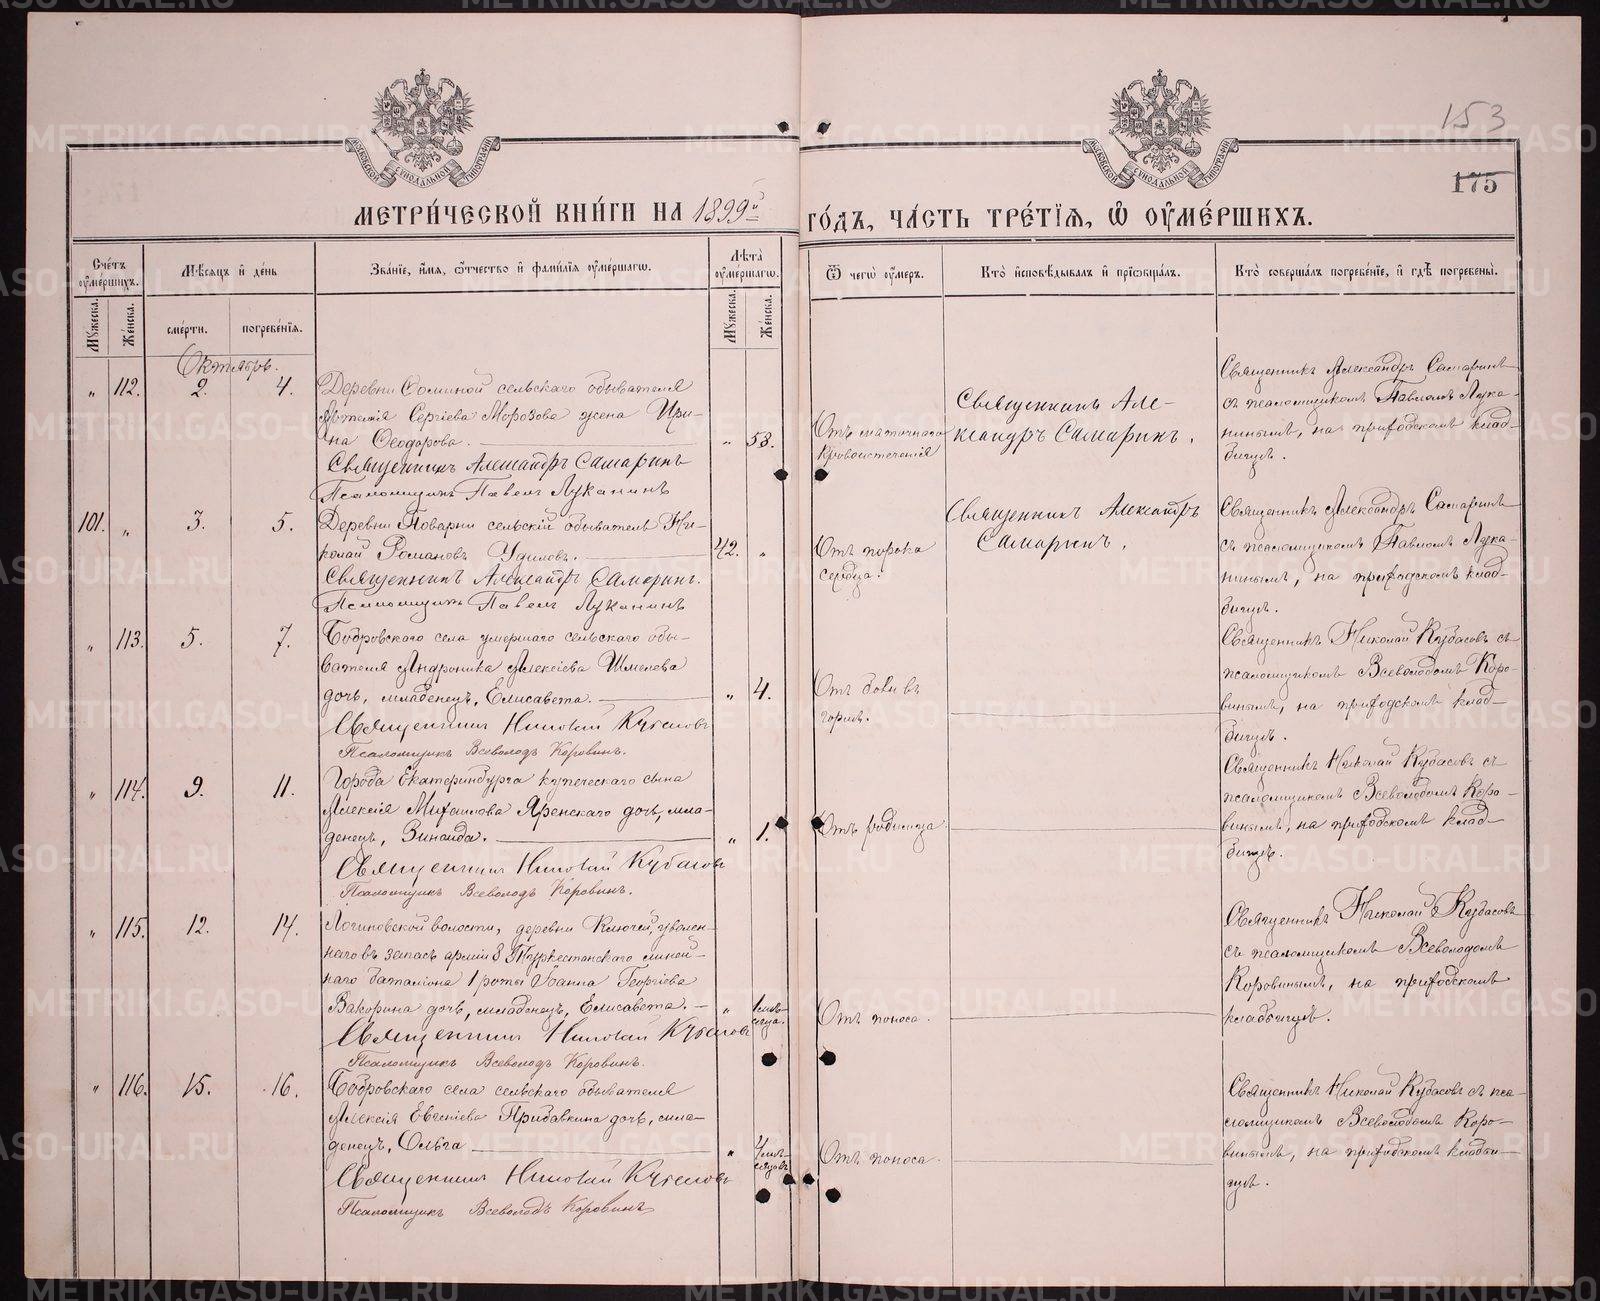 153
175
МЕТРИ́ЧЕСКОЙ КНИ́ГИ НА 1899й
ГО́ДЪ, ЧА́СТЬ ТРЕ́ТІѦ, Ѡ҆ ОУ҆МЕ́РШИХЪ.
Сче́тъ оу҆ме́ршихъ.
Мꙋ́жеска.
Же́нска.
Мѣ́сяцъ и҆ де́нь
сме́рти.
погребе́нїя.
Зва́нїе, и҆́мя, ѻ҆́тчество и҆ фами́лїя оу҆ме́ршагѡ.
Лѣ́та оу҆ме́ршагѡ.
Мꙋ́жеска.
Же́нска.
Ѿ чегѡ̀ оу҆́меръ.
Кто̀ и҆сповѣ́дывалъ и҆ прїѡбща́лъ.
Кто̀ соверша́лъ погребе́нїе, и҆ гдѣ̀ погребены̀.
Октябрь.
„ 112. 2. 4.
Деревни Фоминой сельскаго обывателя
Артемія Сергіева Морозова жена Ири-
на Ѳеодорова. „ 58.
Священникъ Александръ Самаринъ
Псаломщикъ Павелъ Луканинъ
Отъ маточнаго
кровоистеченія
Священникъ Але-
ксандръ Самаринъ.
Священникъ Александръ Самаринъ
съ псаломщикомъ Павломъ Лука-
нинымъ, на приходскомъ клад-
бищѣ.
101. „ 3. 5.
Деревни Поварни сельскій обыватель Ни-
колай Романовъ Удиловъ. 42. „
Священникъ Александръ Самаринъ.
Псаломщикъ Павелъ Луканинъ
Отъ порока
сердца.
Священникъ Александръ
Самаринъ.
Священникъ Александръ Самаринъ
съ псаломщикомъ Павломъ Лука-
нинымъ, на приходскомъ клад-
бищѣ.
„ 113. 5. 7.
Бобровскаго села умершаго сельскаго обы-
вателя Андроника Алексіева Шмелева
дочь, младенецъ, Елисавета. „ 4.
Священникъ Николай Кубасовъ
Псаломщикъ Всеволодъ Коровинъ.
Отъ боли въ
горлѣ.
Священникъ Николай Кубасовъ съ
псаломщикомъ Всеволодомъ Коро-
винымъ, на приходскомъ клад-
бищѣ.
„ 114. 9. 11.
Города Екатеринбурга купеческаго сына
Алексія Михаилова Яренскаго дочь, мла-
денецъ, Зинаида. „ 1.
Священникъ Николай Кубасовъ
Псаломщикъ Всеволодъ Коровинъ.
Отъ родимца
Священникъ Николай Кубасовъ съ
псаломщикомъ Всеволодомъ Коро-
винымъ, на приходскомъ клад-
бищѣ.
„ 115. 12. 14.
Логиновской волости, деревни Ключей, уволен-
наго въ запасъ арміи 8 Туркестанскаго линей-
наго баталіона 1 роты Іоанна Георгіева
Вакорина дочь, младенецъ, Елисавета. „ 1 мѣ-
сяца.
Священникъ Николай Кубасовъ
Псаломщикъ Всеволодъ Коровинъ.
Отъ поноса.
Священникъ Николай Кубасовъ
съ псаломщикомъ Всеволодомъ
Коровинымъ, на приходскомъ
кладбищѣ.
„ 116. 15. 16.
Бобровскаго села сельскаго обывателя
Алексія Евгеніева Прибавкина дочь, мла-
денецъ, Ольга „ 4 мѣ-
сяцовъ
Священникъ Николай Кубасовъ
Псаломщикъ Всеволодъ Коровинъ
Отъ поноса.
Священникъ Николай Кубасовъ съ пса-
ломщикомъ Всеволодомъ Коро-
винымъ, на приходскомъ кладби-
щѣ.
METRIKI.GASO-URAL.RU